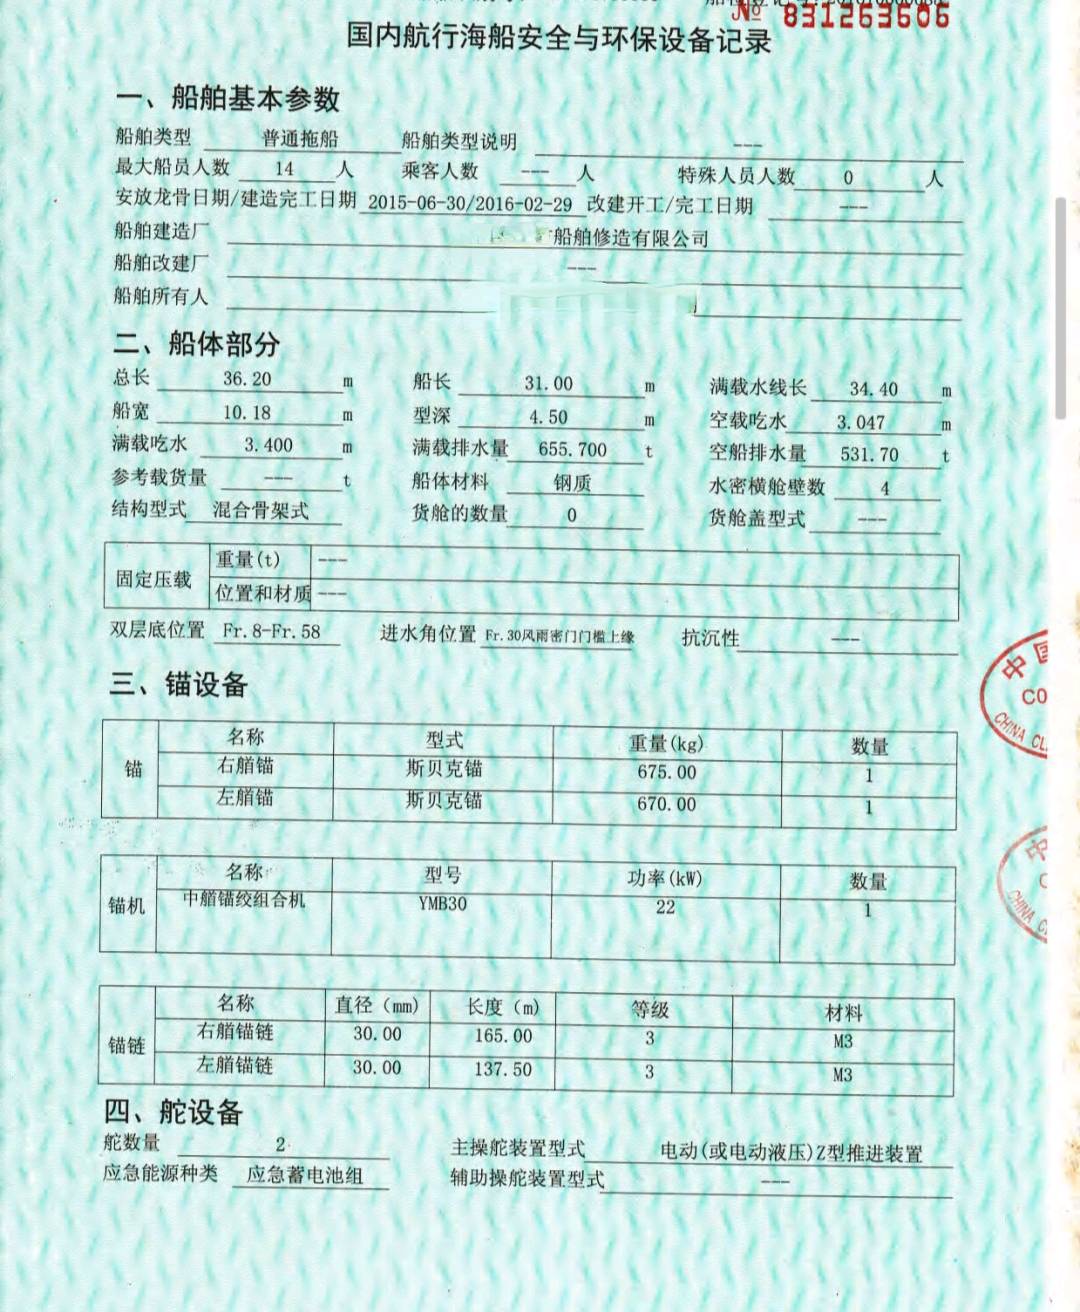 № 831263606
国内航行海船安全与环保设备记录
一、船舶基本参数
船舶类型 普通拖船 船舶类型说明 ---
最大船员人数 14 人 乘客人数 --- 人 特殊人员人数 0 人
安放龙骨日期/建造完工日期 2015-06-30/2016-02-29 改建开工/完工日期 ---
船舶建造厂 船舶修造有限公司
船舶改建厂 ---
船舶所有人
二、船体部分
总长 36.20 m 船长 31.00 m 满载水线长 34.40 m
船宽 10.18 m 型深 4.50 m 空载吃水 3.047 m
满载吃水 3.400 m 满载排水量 655.700 t 空船排水量 531.70 t
参考载货量 --- t 船体材料 钢质 水密横舱壁数 4
结构型式 混合骨架式 货舱的数量 0 货舱盖型式 ---
固定压载 重量(t) ---
位置和材质 ---
双层底位置 Fr.8-Fr.58 进水角位置 Fr.30风雨密门门槛上缘 抗沉性 ---
三、锚设备
锚 名称 型式 重量(kg) 数量
右艏锚 斯贝克锚 675.00 1
左艏锚 斯贝克锚 670.00 1
锚机 名称 型号 功率(kW) 数量
中艏锚绞组合机 YMB30 22 1
锚链 名称 直径（mm) 长度（m) 等级 材料
右艏锚链 30.00 165.00 3 M3
左艏锚链 30.00 137.50 3 M3
四、舵设备
舵数量 2 主操舵装置型式 电动(或电动液压)Z型推进装置
应急能源种类 应急蓄电池组 辅助操舵装置型式 ---
中国
CO
CHINA CL
中
CHINA C